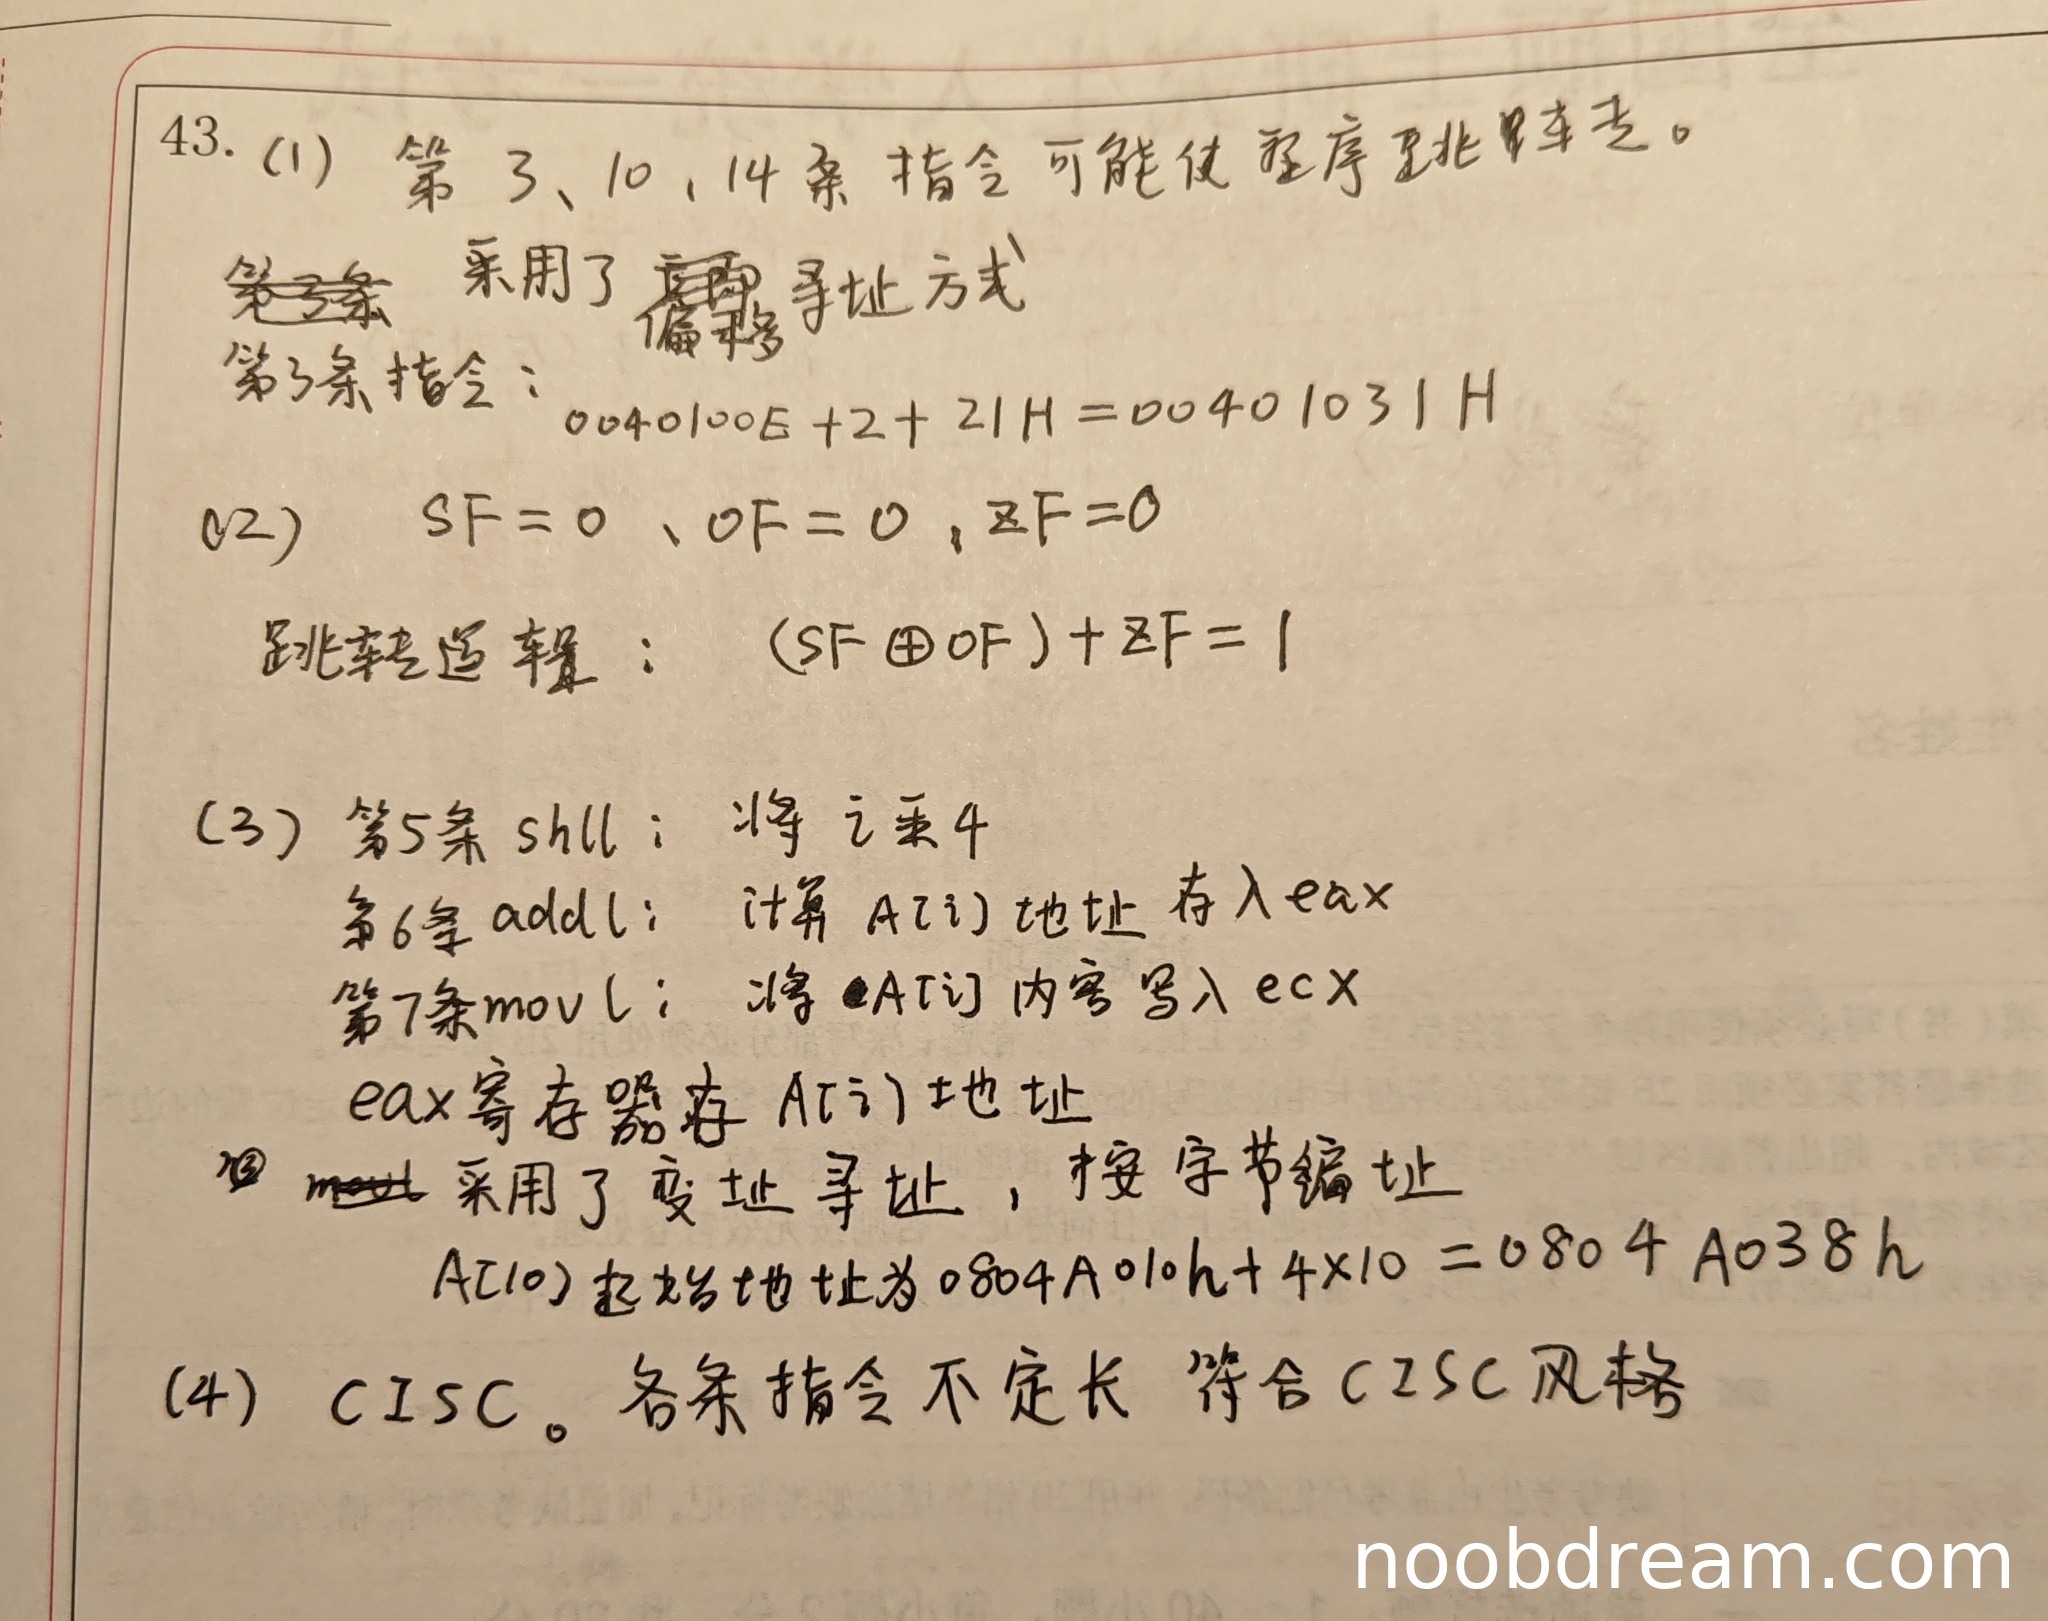 43. (1) 第 3、10、14条 指令 可能使 程序 跳转。
采用了 偏移 寻址方式
第3条指令: 0040100E+2+21H=00401031H
(2) SF=0、OF=0,ZF=0
跳转逻辑: (SF⊕OF)+ZF=1
(3) 第5条 shll: 将 i 乘4
第6条 addl: 计算 A[i] 地址 存入eax
第7条movl: 将 A[i] 内容 写入 ecx
eax寄存器存 A[i] 地址
采用了变址寻址,按字节编址
A[10]起始地址为0804A010h+4×10=0804A038h
(4) CISC。各条指令不定长 符合CISC风格
noobdream.com